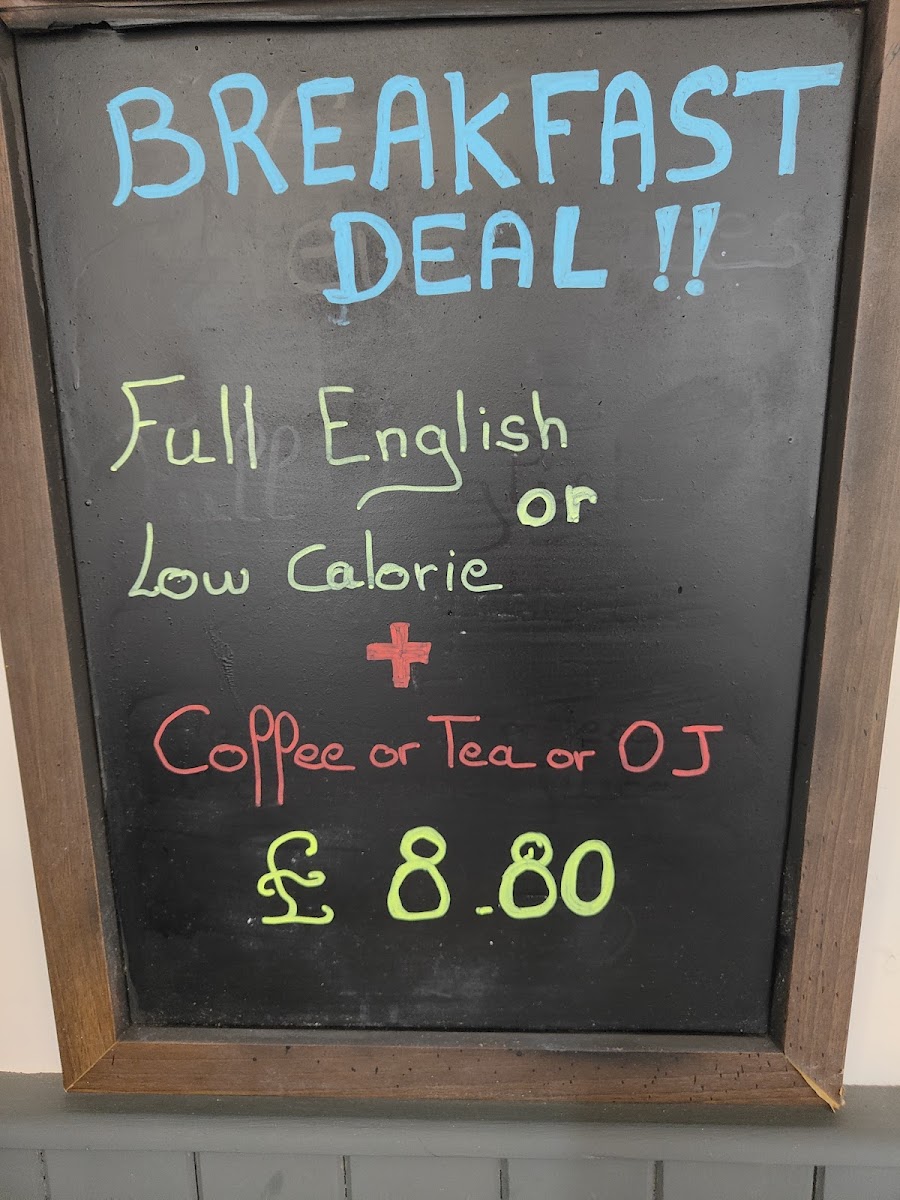 BREAKFAST
DEAL !!
Full English
or
Low Calorie
+
Coffee or Tea or OJ
£ 8.80